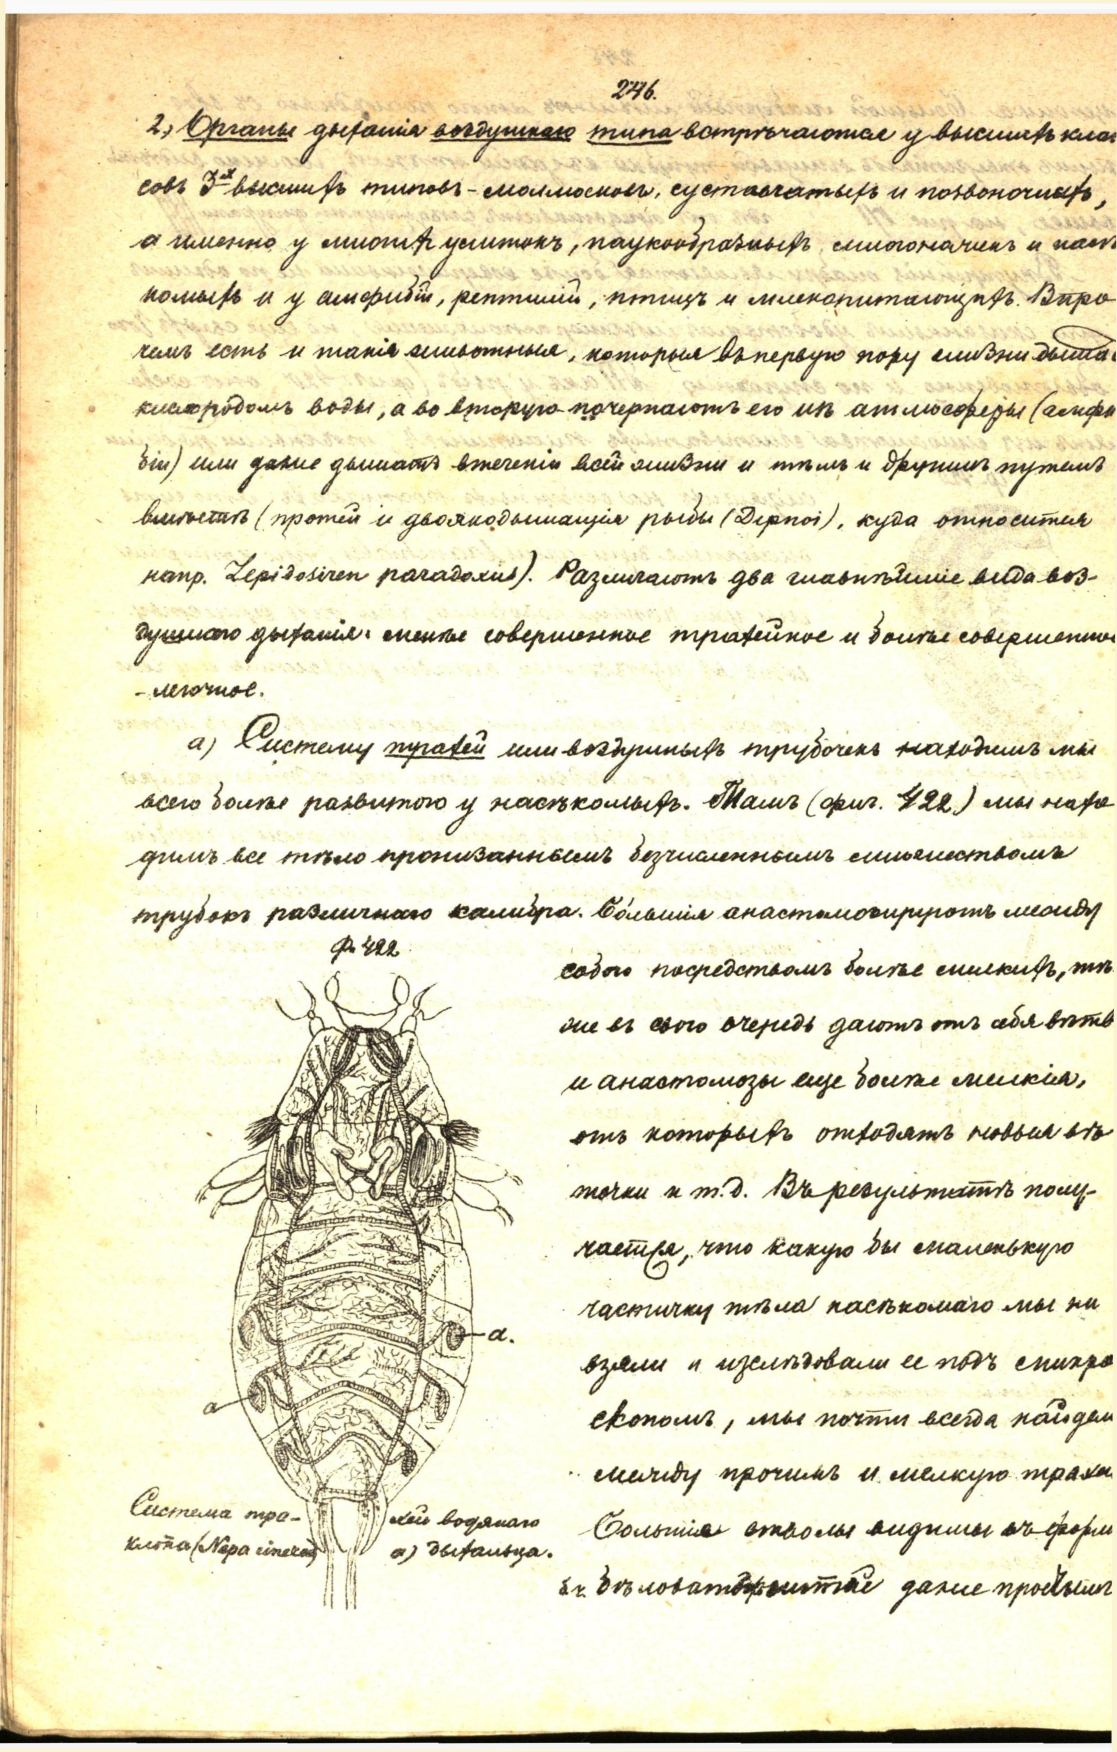 246.
2) Органы дыханія воздушнаго типа встрѣчаются у высшихъ клас
совъ 3-х высшихъ типовъ - моллюсковъ, суставчатыхъ и позвоночныхъ,
а именно у многихъ улитокъ, паукообразныхъ, многоножекъ и насѣ
комыхъ и у амфибій, рептилій, птицъ и млекопитающихъ. Впро
чемъ есть и такія животныя, которыя въ первую пору жизни дыша
кислородомъ воды, а во вторую почерпаютъ его изъ атмосферы (амфи
біи) или даже дышатъ втеченіи всей жизни и тѣмъ и другимъ путемъ
вмѣстѣ (протей и двоякодышащія рыбы (Dipnoi), куда относится
напр. Lepidosiren paradoxus). Различаютъ два главнѣйшіе вида воз-
душнаго дыханія: менѣе совершенное трахейное и болѣе совершенное
- легочное.
а) Систему трахей или воздушныхъ трубочекъ находимъ мы
всего болѣе развитою у насѣкомыхъ. Тамъ (фиг. 422) мы нахо
димъ все тѣло пронизаннымъ безчисленнымъ множествомъ
трубокъ различнаго калибра. Большія анастомозируютъ между
Ф. 422
собою посредствомъ болѣе мелкихъ, тѣ
же въ свою очередь даютъ отъ себя вѣтв
и анастомозы еще болѣе мелкія,
отъ которыхъ отходятъ новыя вѣ
точки и т.д. Въ результатѣ полу-
чается, что какую бы маленькую
частичку тѣла насѣкомаго мы ни
взяли и изслѣдовали ее подъ микро
скопомъ, мы почти всегда найдем
между прочимъ и мелкую трахе
Большія стволы видимы въ форм
даже простымъ
а.
а
Система тра- хей водянаго
клопа (Nepa cinerea) а) дыхальца.